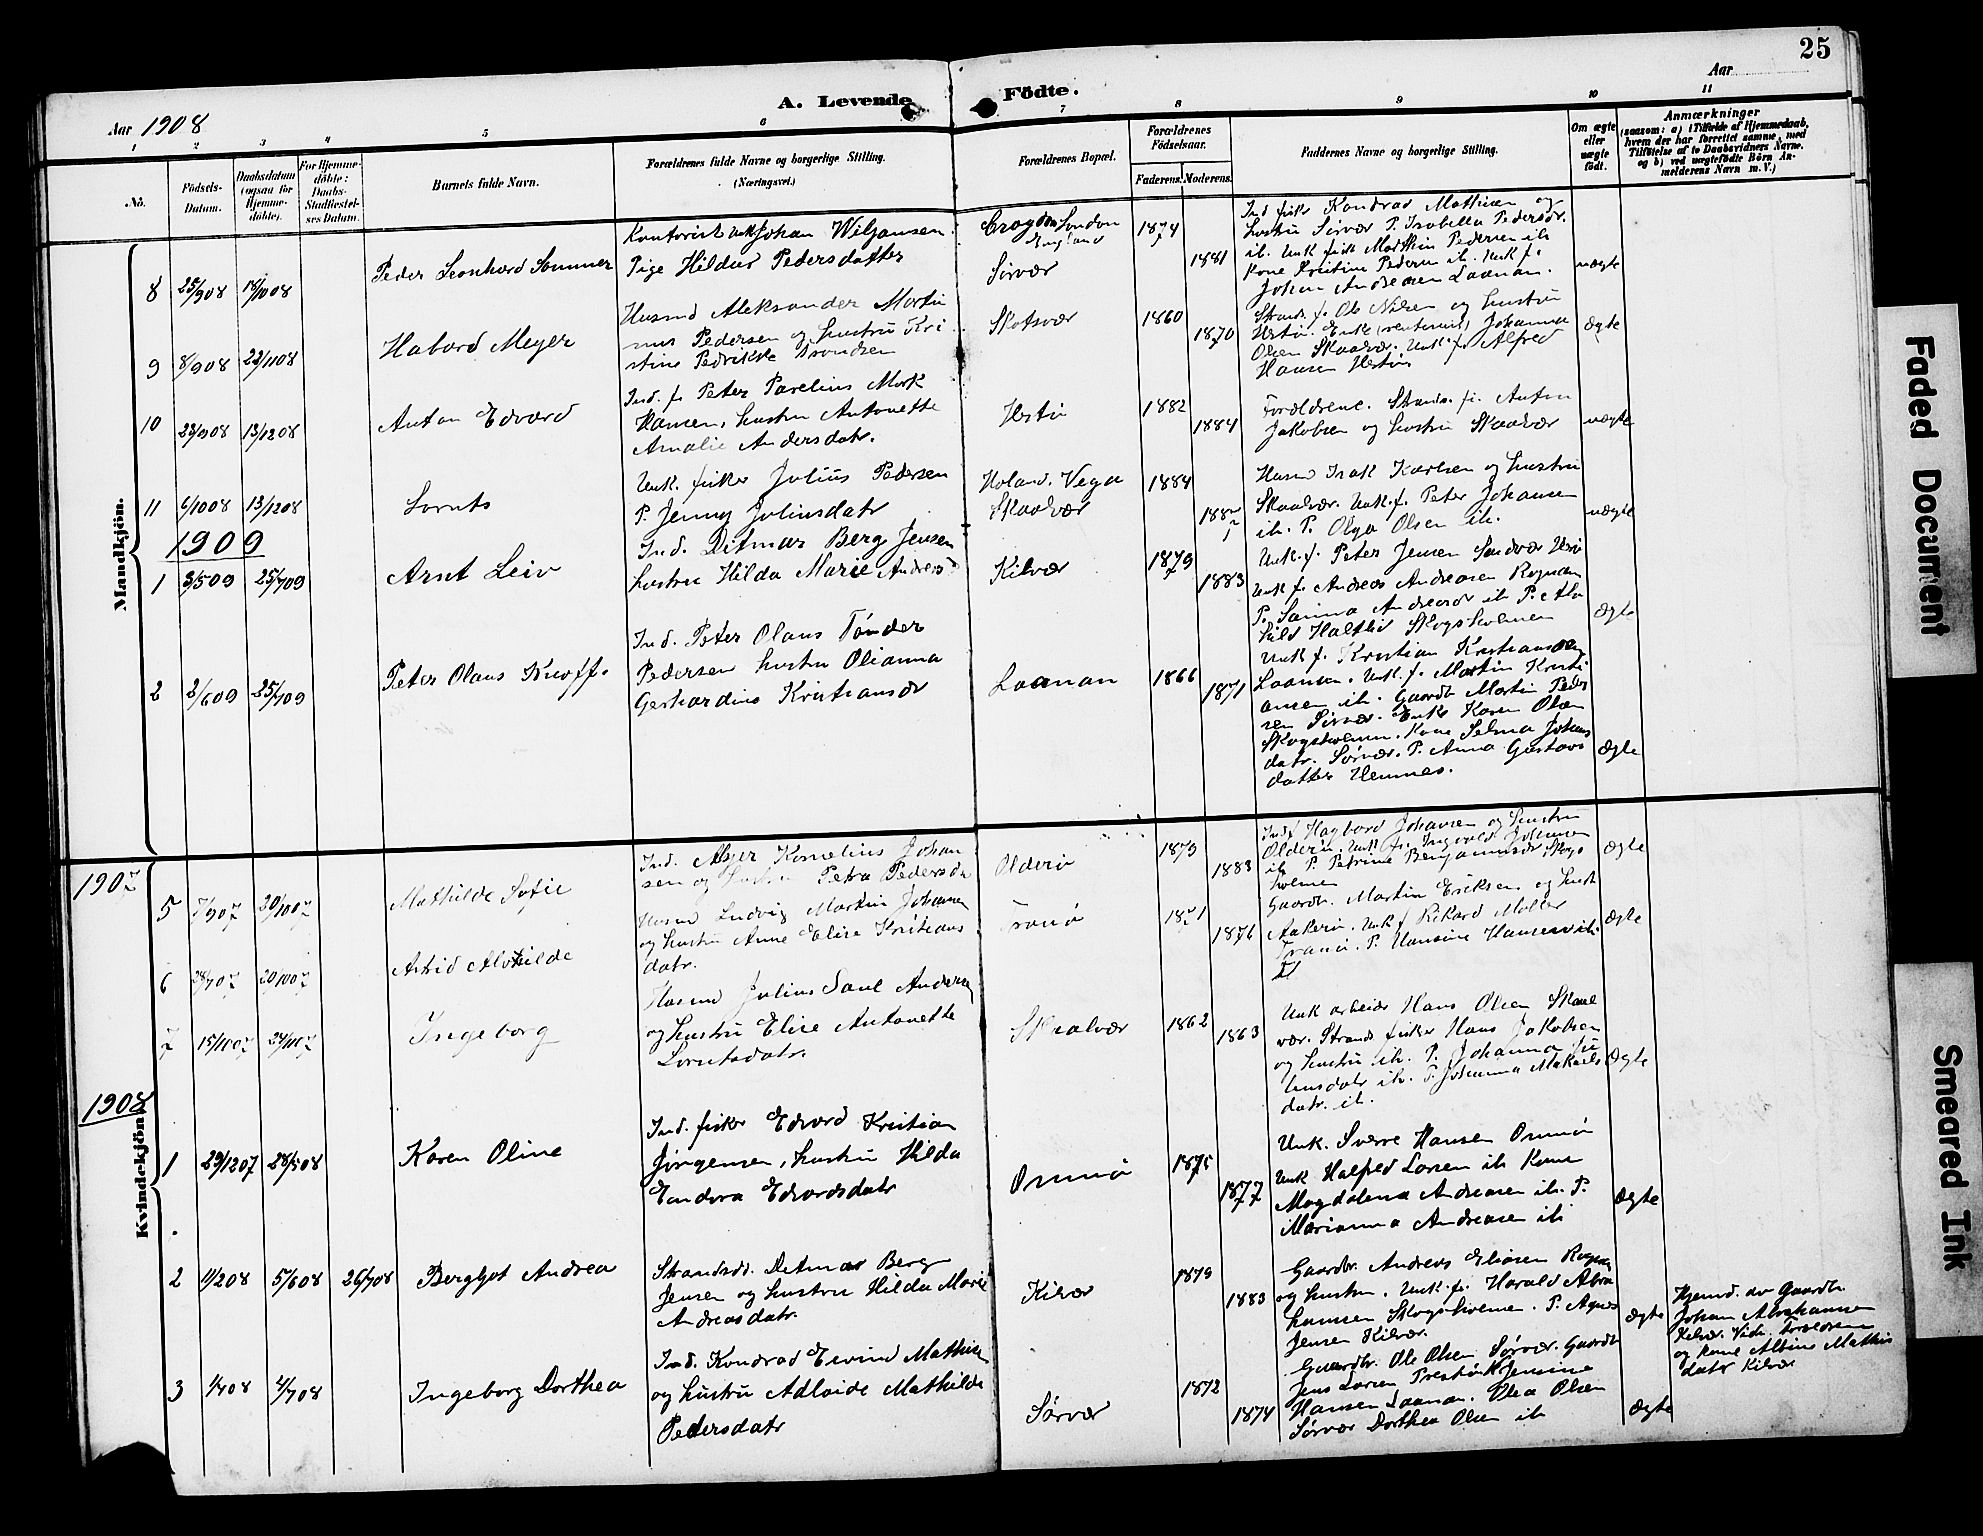 25
Aar
A. Levende Födte.
Aar 1908
1 2 3 4 5 6 7 8 9 10 11
No.
Födsels-
Datum.
Daabsdatum
(ogsaa for
Hjemme-
döbte).
For Hjemme-
döbte:
Daabs-
Stadfæstel-
ses Datum.
Barnets fulde Navn.
Forældrenes fulde Navne og borgerlige Stilling.
(Næringsvei.)
Forældrenes Bopæl.
Forældrenes
Födselsaar.
Faderens. Moderens.
Faddernes Navne og borgerlige Stilling.
Om ægte
eller
uægte
födt.
Anmærkninger
(saasom: a) i Tilfælde af Hjemmedaab,
hvem der har forrettet samme, med
Tilföielse af to Daabsvidners Navne,
og b) ved uægtefödte Börn An-
melderens Navn m. V.)
Mandkjön.
8 25/908 18/1008
Peder Leonhard Sommer
Kontorist Johan Wiljansen
Pige Hildur Pedersdatter
Croydon London
England
Sörvær
1874
1881
Ind fisk Kondrad Mathisen og
hustru Sörvær P. Isabella Pedersdr.
ih. Unk fisk Marthin Pedersen ih
Kone Kristine Pedersen ih. Unk f.
Johan Andreasen Laanan.
uægte
9 8/908 22/1108
Habard Meyer
Husmd Aleksander Marti
nus Pedersen og hustru Kri
stine Pedrikke Trondsen
Skotsvær
1860
1870
Strand. f. Ole Nilsen og hustru
Hestø. Enke (rentenist) Johanna
Olsen Skaalvær. Unk. f. Alfred
Hansen Hestø
Ægte
10 23/908 13/1208
Anton Edvard
Ind. f. Peter Parelius Mork
Hansen, hustru Antonette
Amalie Andersdatr.
Hestø
1882
1884
Forældrene. Strands. f. Anton
Jakobsen og hustru Skaalvær
uægte
11 6/1008 13/1208
Lornts
Unk. fisker Julius Pedersen
P. Jenny Juliusdatr
Holand. Vega
Skaalvær
1884
Husmd Isak Karlsen og hustru
Skaalvær. Unk. f. Peter Johansen
ih. P. Olga Olsen ih.
uægte
1909
1 3/509 25/709
Arnt Leiv
Ind. Ditmar Berg Jensen
hustru Hilda Marie Andreasd
Kilvær
1879
1883
Unk. f. Peter Jensen Sandvær Herø
Unk f. Andreas Andreasen Rognan
P. Sanna Andreasdr ih P. Alv
hild Halthid Skogsholmen
Ægte
2 2/609 25/709
Peter Olaus Knoff.
Ind. Peter Olaus Tönder
Pedersen hustru Olianna
Gerhardine Kristiansdr
Laanan
1866
1871
Unk f. Kristian Kristiansen
Laanan. Unk. f. Martin Kristi
ansen ih. Gaardb Martin Peder
sen Sörvær. Enke Karen Olsen
Skogsholmen. Kone Selma Johans
datr. Sörvær. P. Anna Gustavs
datter Hemnes.
Ægte
1907
Kvindekjön.
5 7/907 20/1007
Mathilde Sofie
Ind. Meyer Kornelius Johan
sen og hustru Petra Pedersda
Olderø
1879
1883
Ind f Hagbard Johansen og hustru
Olderø. Unk f. Ingvald Johansen
ih P. Petrine Benjaminsdr Skogs
holmen
Ægte
6 28/707 20/1007
Astrid Alvhilde
Husmd Ludvig Martin Johansen
og hustru Anne Elise Kristians
datr.
Tranø
1871
1876
Gaardbr. Martin Eriksen og hust
Aakerø. Unk f Rikard Møller
Tranø. P. Hansine Hansen ih.
Ægte
7 15/1007 24/1107
Ingeborg
Husmd Julius Saul Andersen
og hustru Elise Antonette
Lorntsdatr.
Skaalvær
1862
1863
Unk arbeider Hans Olsen Skaal
vær. Strands fisker Hans Jakobsen
og hustru ih. P. Johanna Ju
liusdatr ih. P. Johanna Mikaels
datr. ih.
Ægte
1908
1 29/1207 28/508
Karen Oline
Ind. fisker Edvard Kristian
Jörgensen, hustru Hilda
Eendora Edvardsdatr
Ommø
1875
1877
Unk. Sverre Hansen Ommø
Unk Halfred Larsen ih Kone
Magdalena Andreasen ih. P.
Marianna Andreasen ih
Ægte
2 11/208 5/608 26/708
Bergljot Andrea
Strandsd. Detmar Berg
Jensen og hustru Hilda Marie
Andreasdatr.
Kilvær
1879
1883
Gaardbr. Andreas Eliasen Rognan
og hustru. Unk. f. Harald Abra
hamsen Skogsholmen. P. Agnes
Jensen Kilvær.
Ægte
Hjemd. av Gaardb.
Johan Abrahamsen
Kilvær. Vidn. forældrene
og kone Albine Mathis
datr Kilvær
3 1/408 4/708
Ingeborg Dorthea
Ind. Kondrad Eivind Mathisen
og hustru Adlaide Mathilde
Pedersdatr
Sörvær
1872
1874
Gaardbr. Ole Olsen Sörvær. Gaardb
Jens Larsen Prestøen Jensine
Hansen Laanan. Olea Olsen
Sörvær Dorthea Olsen ih
Ægte
Faded Document
Smeared Ink